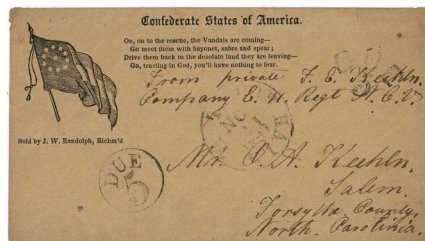 Confederate States of America.
On, on to the rescue, the Vandals are coming—
Go meet them with bayonet, sabre and spear;
Drive them back to the desolate land they are leaving—
Go, trusting in God, you'll have nothing to fear.
From private F. E. Keehln.
Company E. 11 Regt N. C. V.
Sold by J. W. Randolph, Richm'd
DUE
5
Mr. O. A. Keehln.
Salem.
Forsythe County.
North Carolinia.